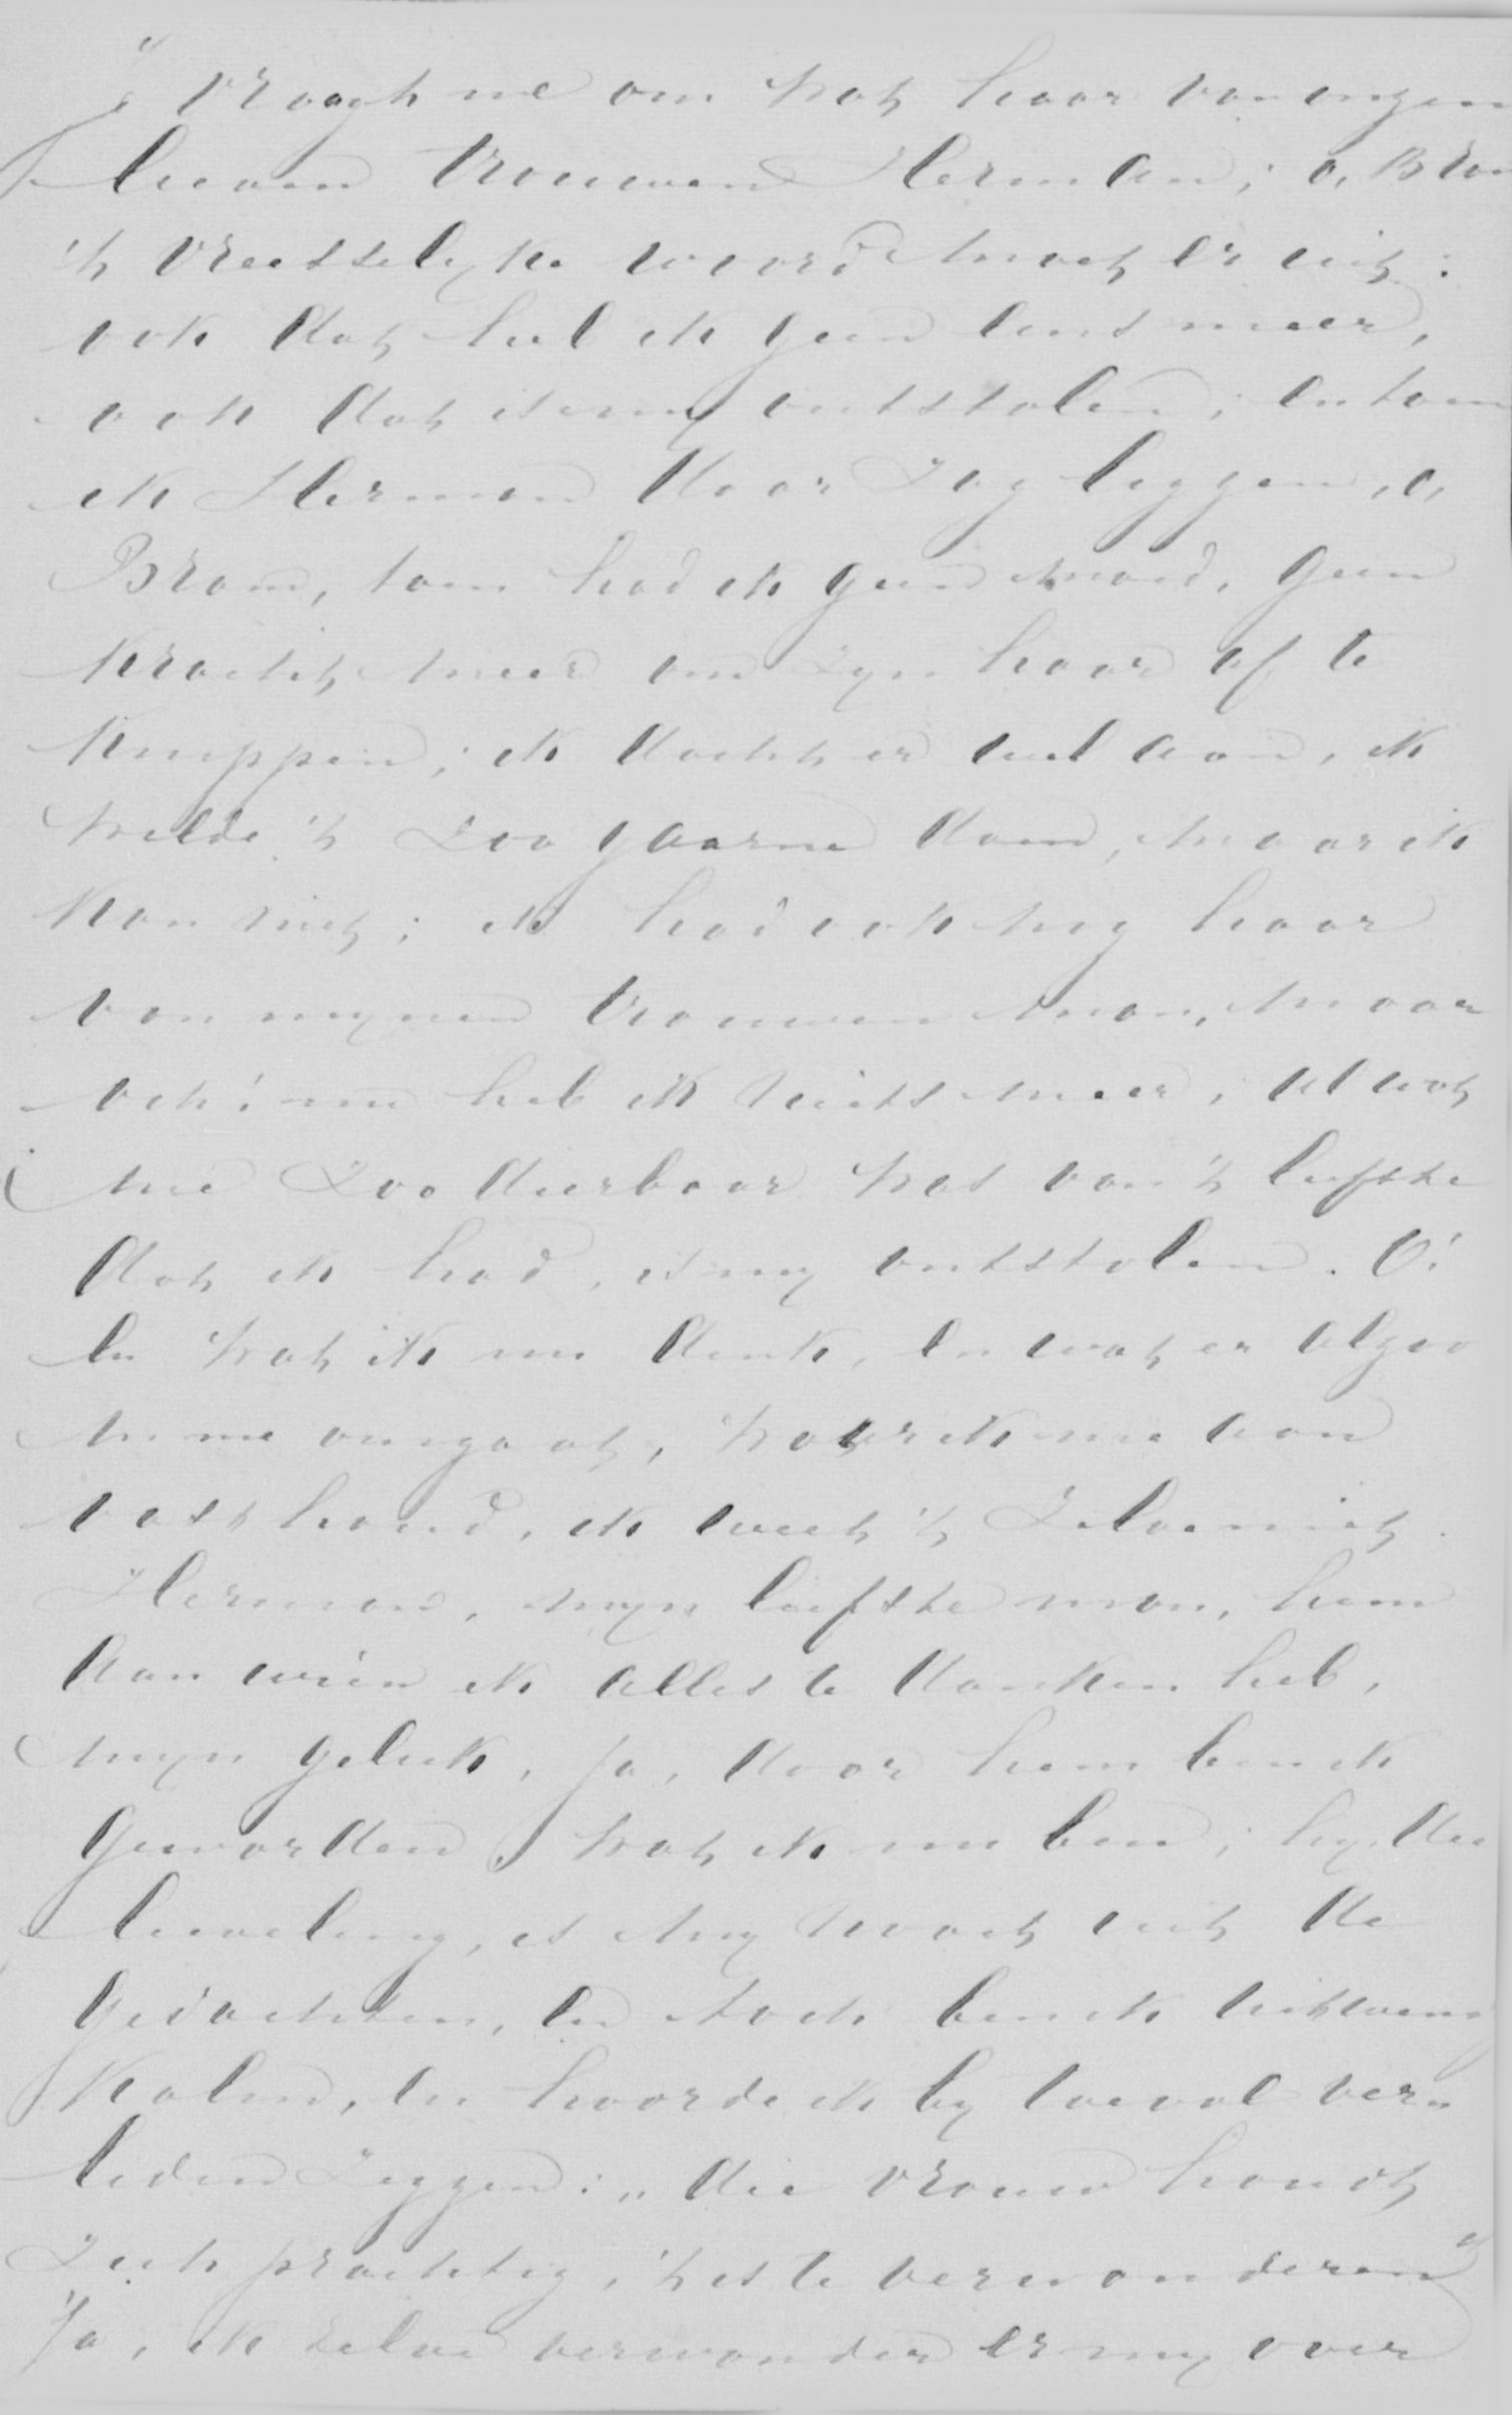 J' vraagt me om wat haar van onzen
lieven trouwen Herman; o, Bram
't vreesselyke woord moet er uit:
ook dat heb ik geen eens meer,
ook dat is my ontstolen; en toen
ik Herman daar zag liggen, o,
Bram, toen had ik geen moed, geen
kracht meer om zyn haar af te
knippen; ik dacht er wel aan, ik
wilde 't zoo gaarne doen, maar ik
kon niet; ik had ook nog haar
van mynen trouwen man, maar
och! nu heb ik niets meer, al wat
me zoo dierbaar was van 't liefste
dat ik had, is my ontstolen. O!
en wat ik nu denk, en wat er alzoo
in me omgaat, waar ik me aan
vasthoud, ik weet 't zelve niet.
Herman, myn liefste man, hem
aan wien ik alles te danken heb,
myn geluk, ja, door hem ben ik
geworden wat ik nu ben; hy, die
lieveling, is my nooit uit de
gedachten, en toch ben ik uitwendig
kalm, en hoorde ik by toeval ver"
leden zeggen: „die vrouw houdt
zich prachtig, 't is te verwonderen"
Ja, ik zelve verwonder er my over